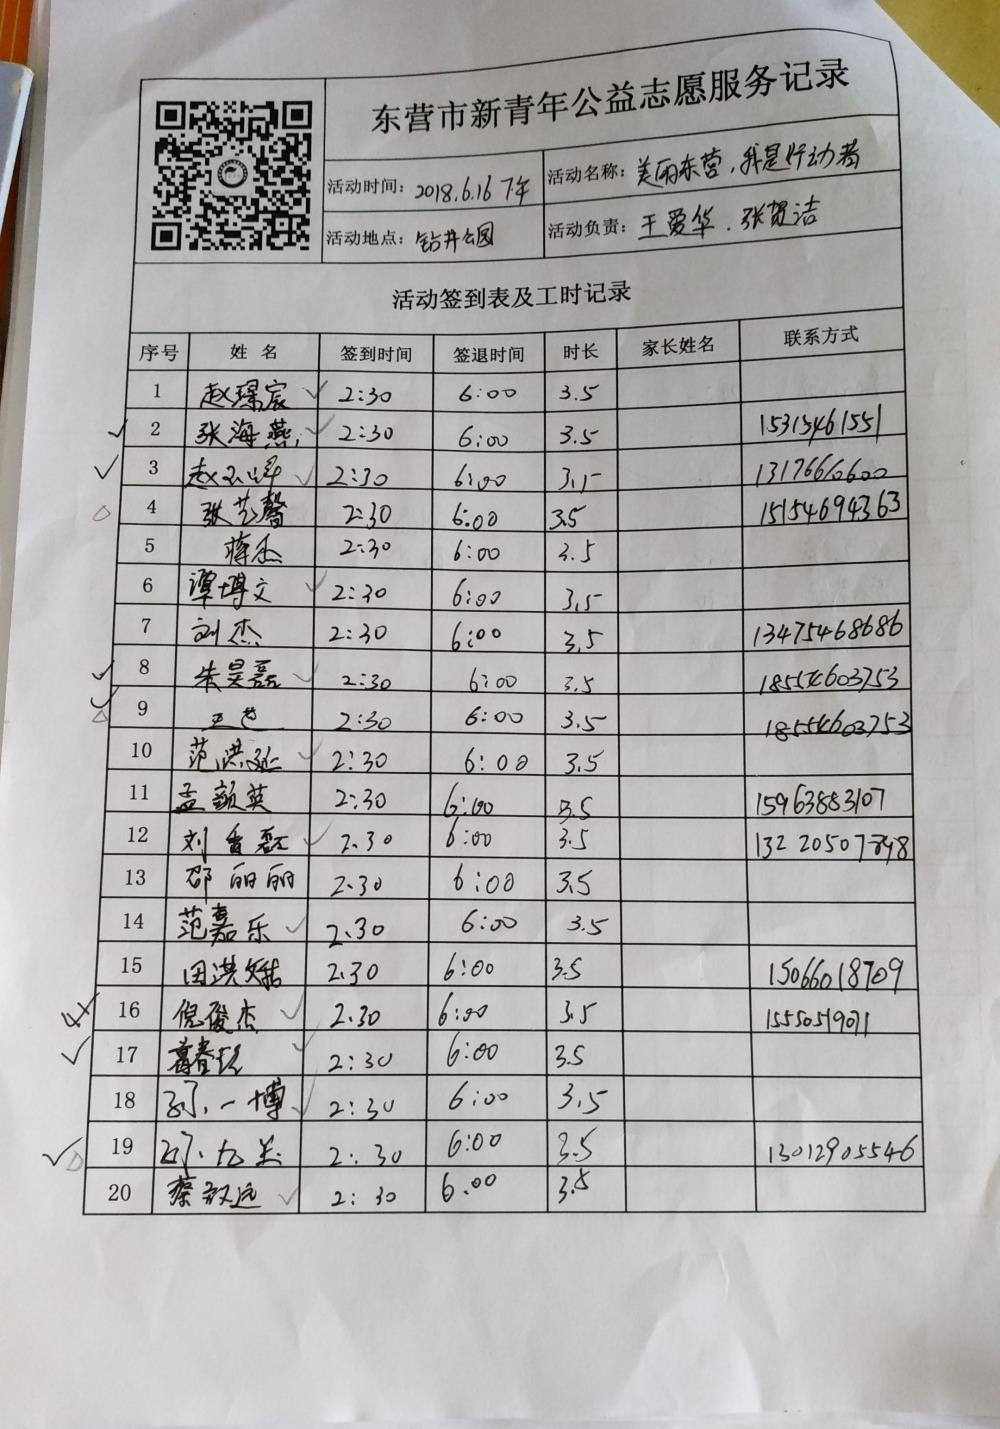 东营市新青年公益志愿服务记录
活动时间: 2018.6.16 下午 活动名称: 美丽东营,我是行动者
活动地点: 钻井公园 活动负责: 王爱华、张贺洁
活动签到表及工时记录
序号 姓名 签到时间 签退时间 时长 家长姓名 联系方式
1 赵璟宸 2:30 6:00 3.5
2 张海燕 2:30 6:00 3.5 15315461551
3 2:30 6:00 3.5 13176660600
4 张艺馨 2:30 6:00 3.5 15154694363
5 蒋杰 2:30 6:00 3.5
6 谭博文 2:30 6:00 3.5
7 刘杰 2:30 6:00 3.5 13475468686
8 朱昊磊 2:30 6:00 3.5 18554603753
9 王芭 2:30 6:00 3.5 18554603753
10 范洪延 2:30 6:00 3.5
11 孟颖英 2:30 6:00 3.5 15963883107
12 刘香磊 2.30 6:00 3.5 13220507848
13 邵丽丽 2.30 6:00 3.5
14 范嘉乐 2.30 6:00 3.5
15 田洪 2.30 6:00 3.5 15066018709
16 倪俊杰 2.30 6:00 3.5 15550519071
17 2:30 6:00 3.5
18 孙一博 2:30 6:00 3.5
19 2:30 6:00 3.5 13012905546
20 蔡致远 2:30 6.00 3.5